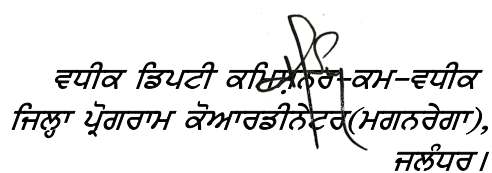 ਵਧੀਕ ਡਿਪਟੀ ਕਮਿਸ਼ਨਰ-ਕਮ-ਵਧੀਕ
ਜਿਲ੍ਹਾ ਪ੍ਰੋਗਰਾਮ ਕੋਆਰਡੀਨੇਟਰ(ਮਗਨਰੇਗਾ),
ਜਲੰਧਰ।